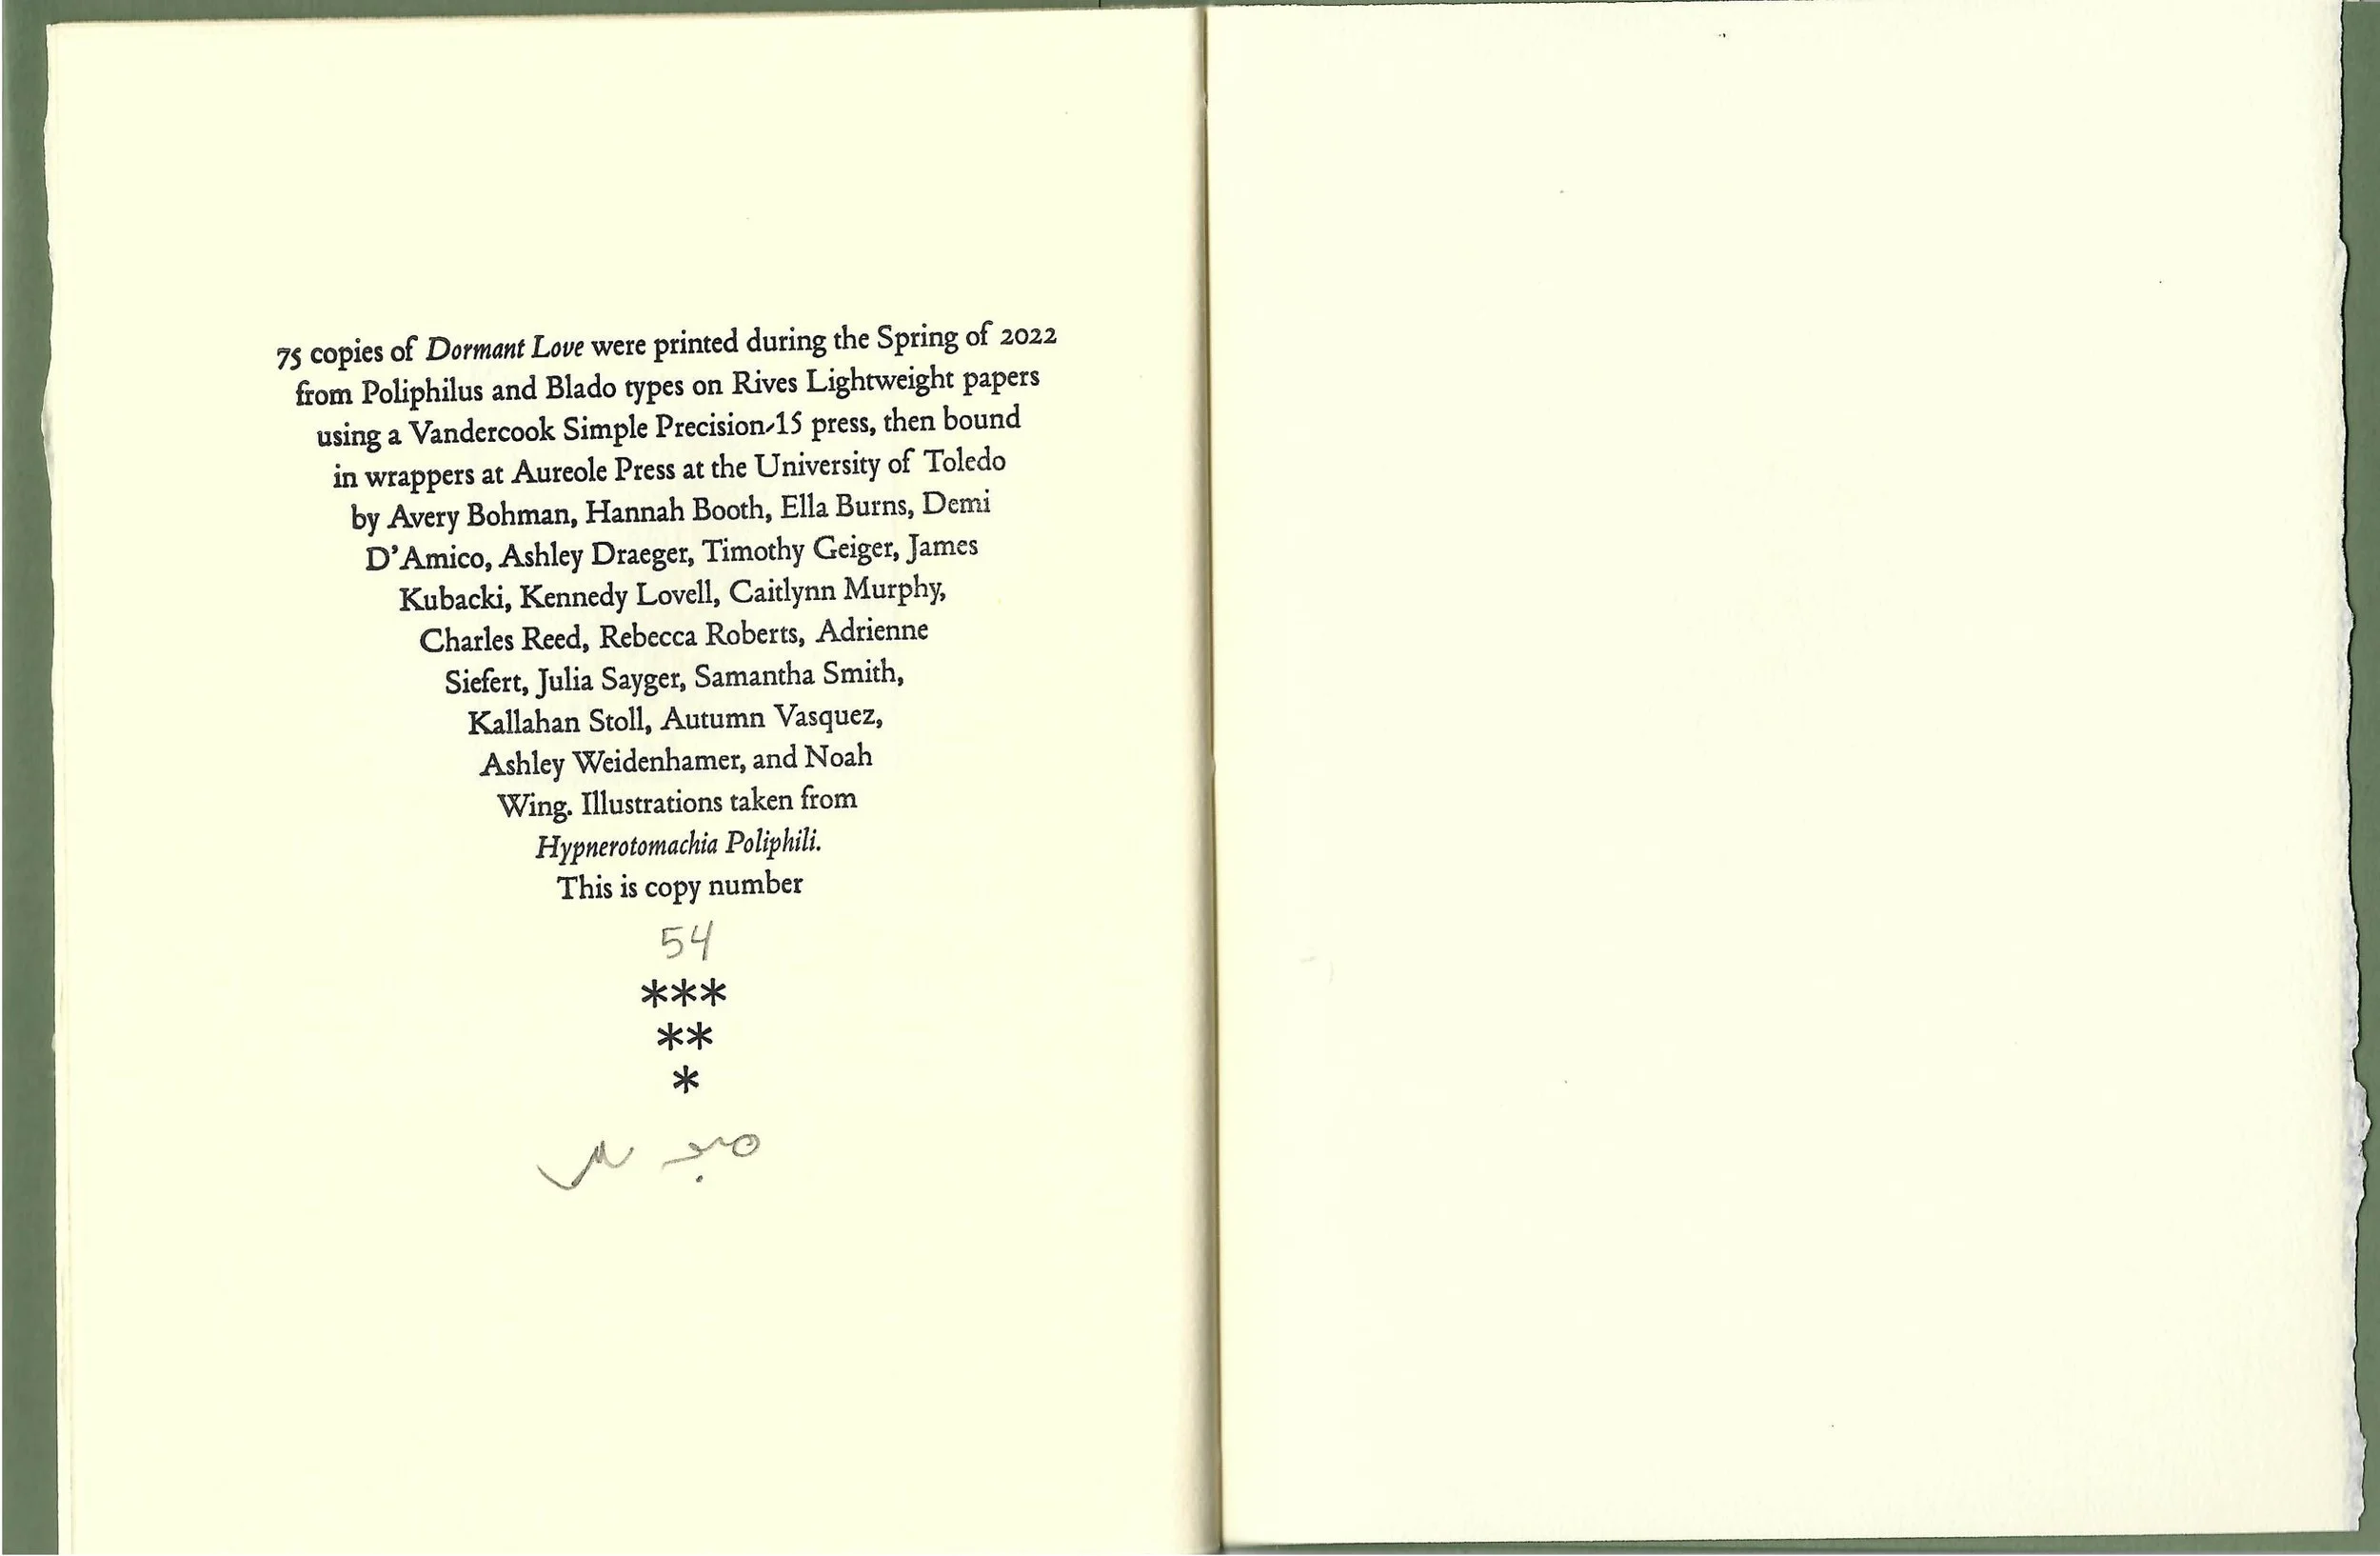 75 copies of Dormant Love were printed during the Spring of 2022
from Poliphilus and Blado types on Rives Lightweight papers
using a Vandercook Simple Precision-15 press, then bound
in wrappers at Aureole Press at the University of Toledo
by Avery Bohman, Hannah Booth, Ella Burns, Demi
D’Amico, Ashley Draeger, Timothy Geiger, James
Kubacki, Kennedy Lovell, Caitlynn Murphy,
Charles Reed, Rebecca Roberts, Adrienne
Siefert, Julia Sayger, Samantha Smith,
Kallahan Stoll, Autumn Vasquez,
Ashley Weidenhamer, and Noah
Wing. Illustrations taken from
Hypnerotomachia Poliphili.
This is copy number
54
***
**
*